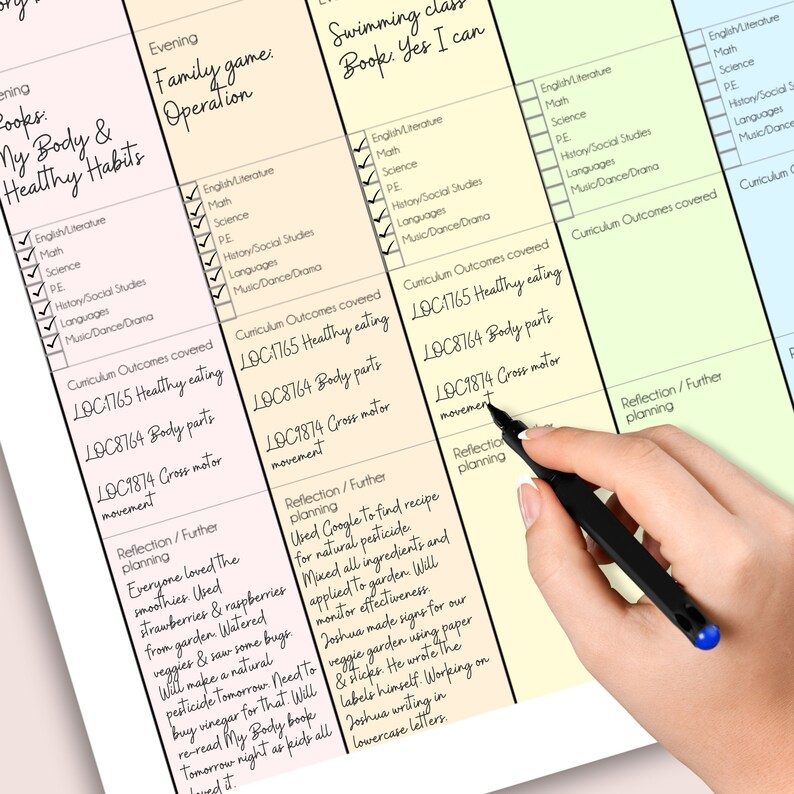 Evening
Books:
My Body &
Healthy Habits
English/Literature
Math
Science
P.E.
History/Social Studies
Languages
Music/Dance/Drama
Curriculum Outcomes covered
LOC1765 Healthy eating
LOC8764 Body parts
LOC9874 Gross motor
movement
Reflection / Further
planning
Everyone loved the
smoothies. Used
strawberries & raspberries
from garden. Watered
veggies & saw some bugs.
Will make a natural
pesticide tomorrow. Need to
buy vinegar for that. Will
re-read My Body book
tomorrow night as kids all
loved it.
Evening
Family game:
Operation
English/Literature
Math
Science
P.E.
History/Social Studies
Languages
Music/Dance/Drama
Curriculum Outcomes covered
LOC1765 Healthy eating
LOC8764 Body parts
LOC9874 Gross motor
movement
Reflection / Further
planning
Used Google to find recipe
for natural pesticide.
Mixed all ingredients and
applied to garden. Will
monitor effectiveness.
Joshua made signs for our
veggie garden using paper
& sticks. He wrote the
labels himself. Working on
Joshua writing in
lowercase letters.
Swimming class
Book: Yes I can
English/Literature
Math
Science
P.E.
History/Social Studies
Languages
Music/Dance/Drama
Curriculum Outcomes covered
LOC1765 Healthy eating
LOC8764 Body parts
LOC9874 Gross motor
movement
Reflection / Further
planning
English/Literature
Math
Science
P.E.
History/Social Studies
Languages
Music/Dance/Drama
Curriculum Outcomes covered
Reflection / Further
planning
English/Literature
Math
Science
P.E.
History/Social S
Languages
Music/Dance/
Curriculum O